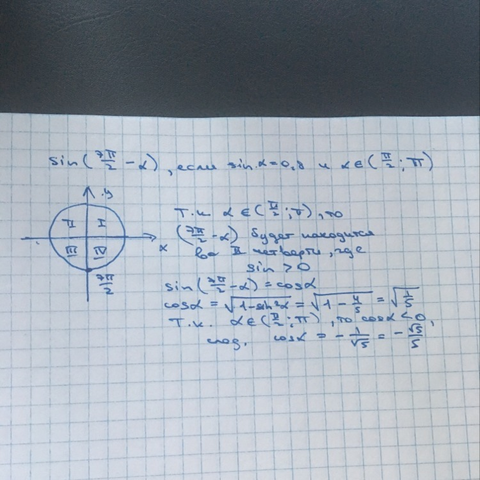 sin(7π/2 - α), если sin α = 0,8 и α ∈ (π/2; π)
y
II I
III IV
x
7π/2
Т.к. α ∈ (π/2; π), то
(7π/2 - α) будет находится
во II четверти, где
sin > 0
sin(7π/2 - α) = cosα
cosα = √(1-sin²α) = √(1 - 4/5) = √(1/5)
Т.к. α ∈ (π/2; π), то cosα < 0,
след. cosα = - 1/√5 = - √5/5